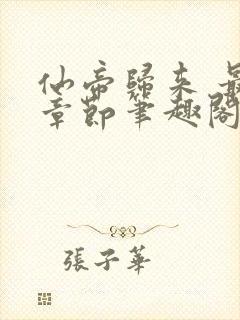 仙帝歸來 最
章節筆趣閣
張子華